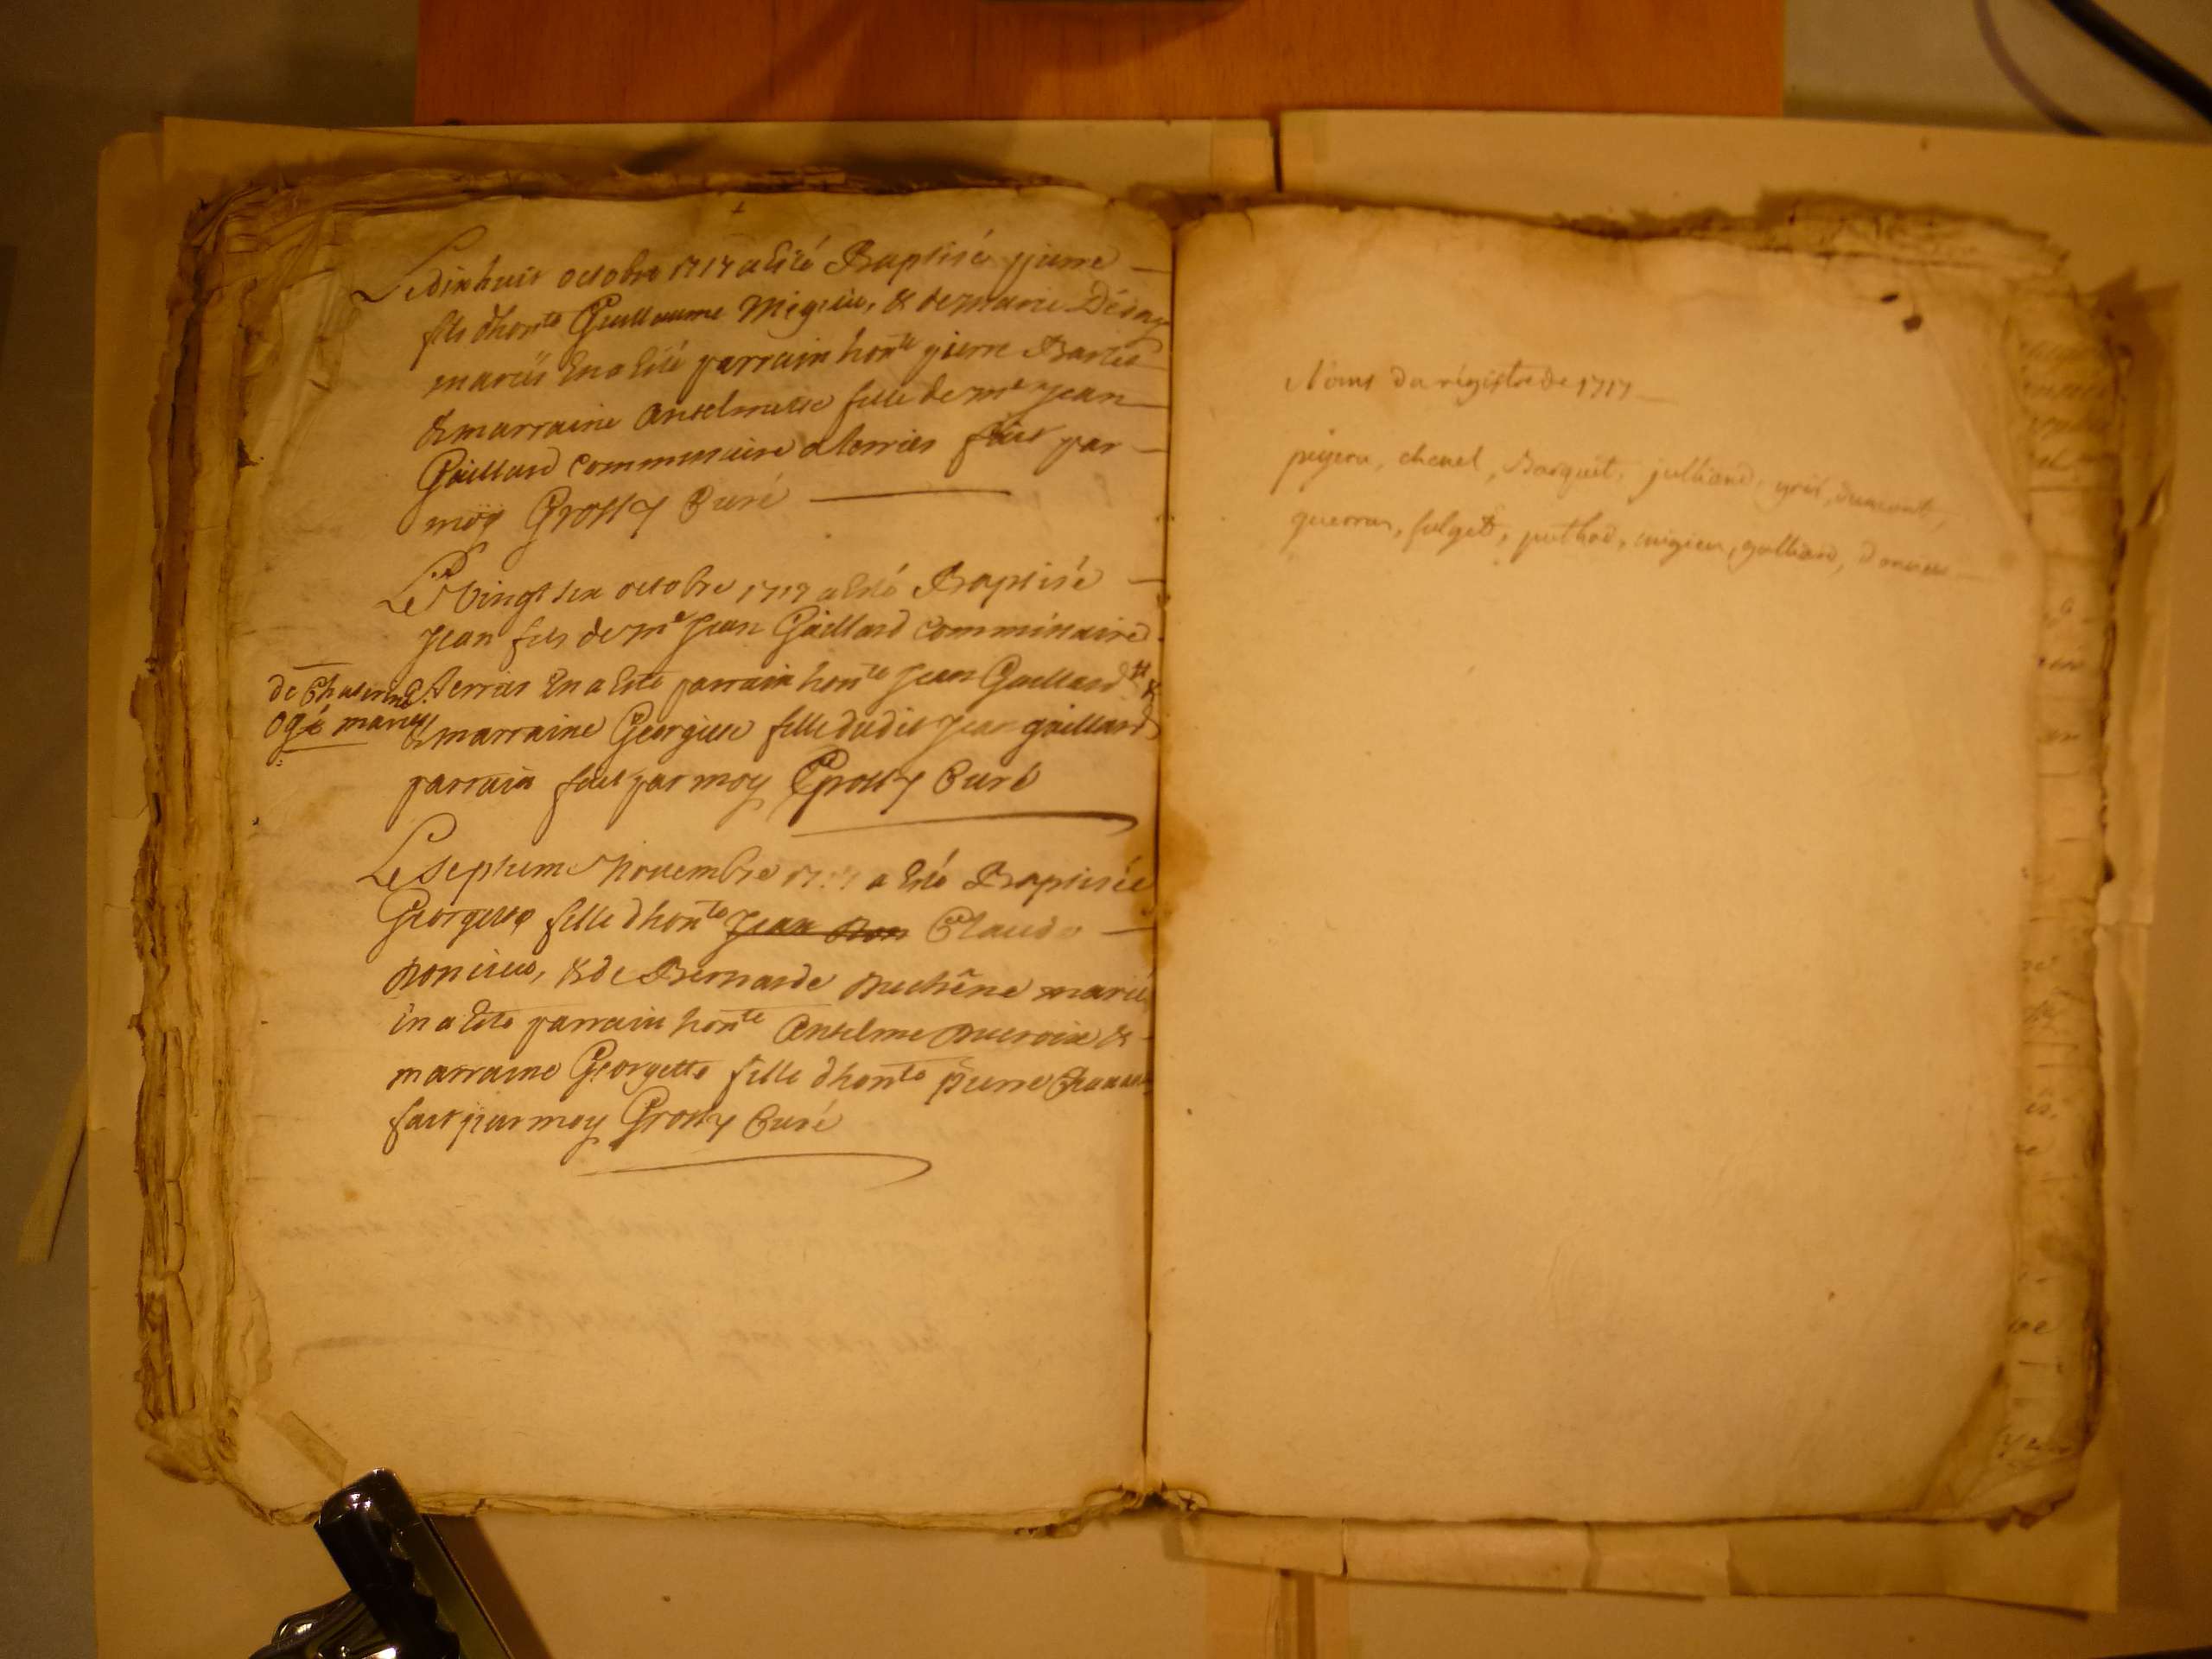 Le dixhuit octobre 1717 a Esté Baptisé pierre
fils d'hon.te Guillaume Migieu, & de marie
mariés En a Esté parrain hon.te pierre
& marraine Anselmette fille de m.e Jean
Gaillard commissaire a terrier fait par
moÿ Grossy Curé
Le Vingt six octobre 1717 a Esté Baptisé
Jean fils de m.e Jean Gaillard commissaire
de Chaterine
ogé mariés
a terrier En a Esté parrain hon.te Jean Gaillard &
& marraine Georgette fille dudit Jean gaillard
parrain fait par moy Grossy Curé
Le septieme Novembre a Esté Baptisée
Georgette fille d'hon.te Jean Don Claude
Doncieu, & de Bernarde Duchêne mariés
En a Esté parrain hon.te Anselme Ducroix &
marraine Georgette fille d'hon.te pierre
fait par moy Grossy Curé
Noms du régistre de 1717
chenel, julliand, gris, dumont,
guerraz, falget, puthod, migieu, galliard, doncieu